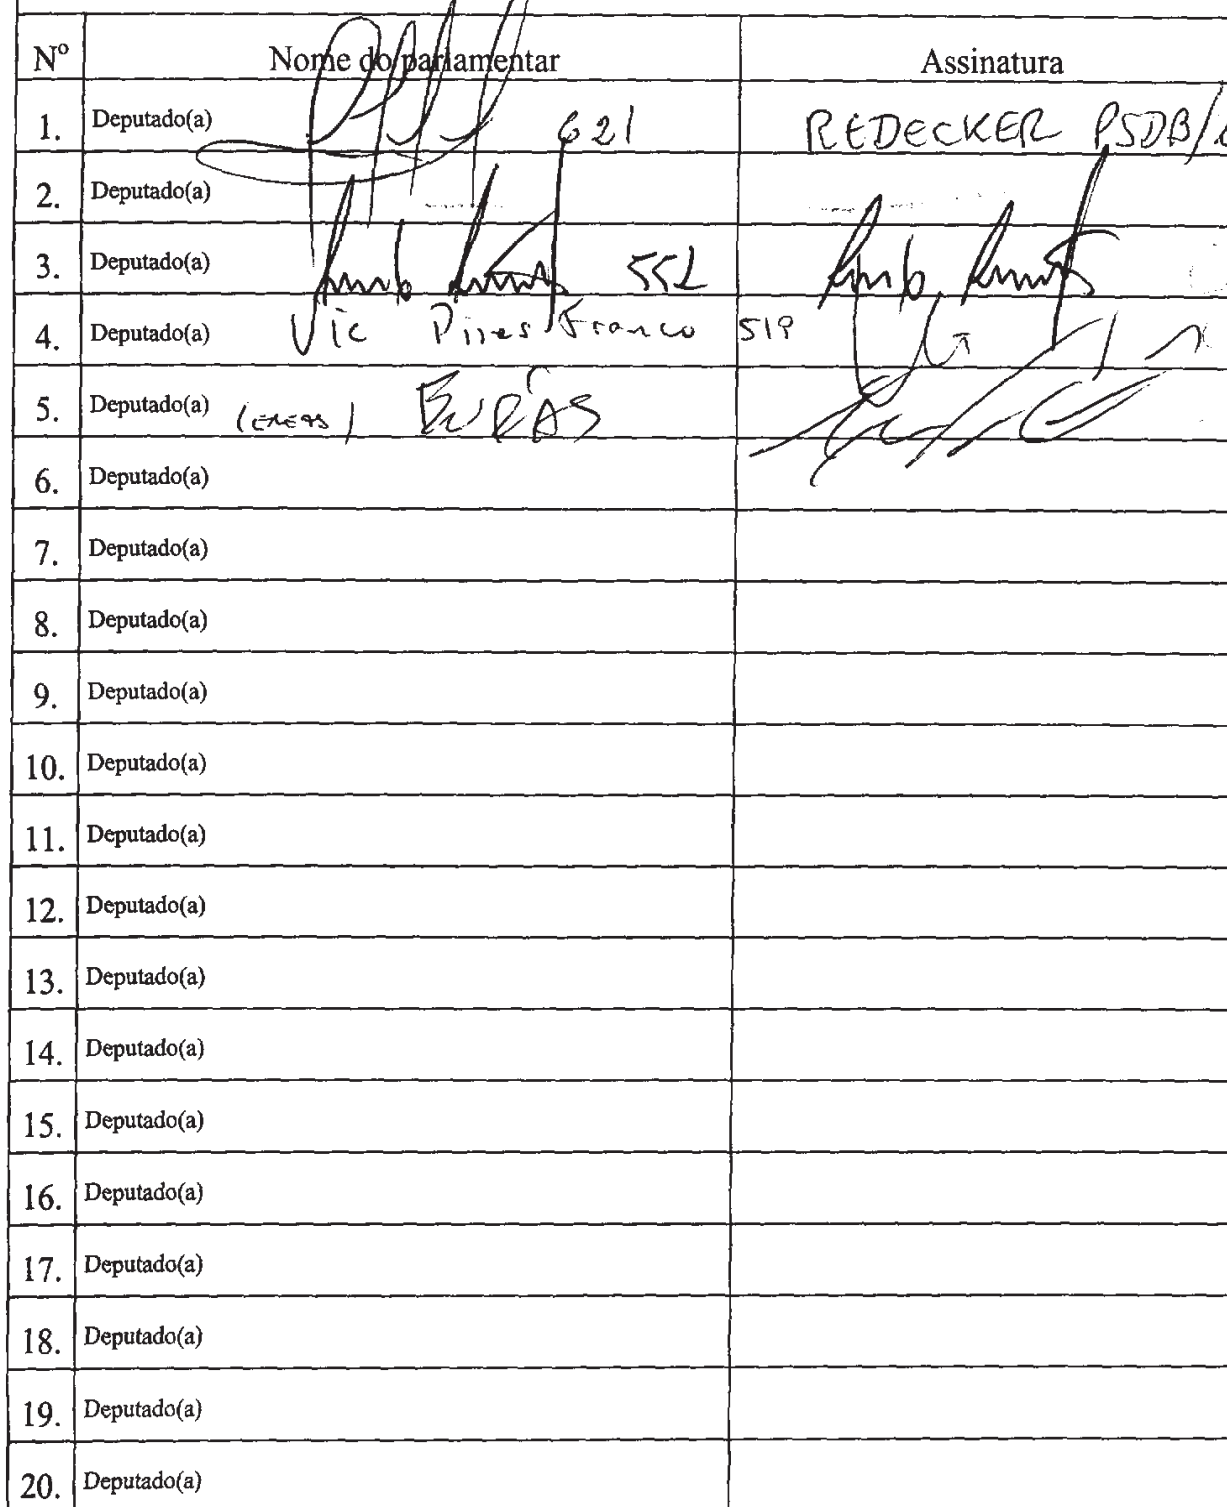 Nº Nome do parlamentar Assinatura
1. Deputado(a) 621 REDECKER PSDB/
2. Deputado(a)
3. Deputado(a) 552
4. Deputado(a) Vic Pires Franco 519
5. Deputado(a) (ENEAS)
6. Deputado(a)
7. Deputado(a)
8. Deputado(a)
9. Deputado(a)
10. Deputado(a)
11. Deputado(a)
12. Deputado(a)
13. Deputado(a)
14. Deputado(a)
15. Deputado(a)
16. Deputado(a)
17. Deputado(a)
18. Deputado(a)
19. Deputado(a)
20. Deputado(a)